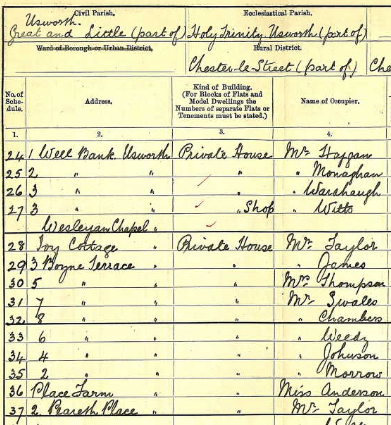 Civil Parish. Ecclesiastical Parish.
Usworth.
Great and Little (part of) Holy Trinity, Usworth (part of)
Ward of Borough or Urban District. Rural District.
Chester-le-Street (part of) Che
No. of Schedule. Address. Kind of Building. (For Blocks of Flats and Model Dwellings the Numbers of separate Flats or Tenements must be stated.) Name of Occupier.
1. 2. 3. 4.
24 1 Well Bank Usworth Private House Mr Haggan
25 2 " " " " Monaghan
26 3 " " " " Warshaugh
27 3 " " " Shop " Witts
Wesleyan Chapel "
28 Ivy Cottage " Private House Mr Taylor
29 3 Boyne Terrace " " " James
30 5 " " " Mrs Thompson
31 7 " " " Mr Swales
32 8 " " " " Chambers
33 6 " " " " Weedy
34 4 " " " " Johnson
35 2 " " " " Morrow
36 Place Farm " " Miss Anderson
37 2 Peareth Place " " Mr Taylor